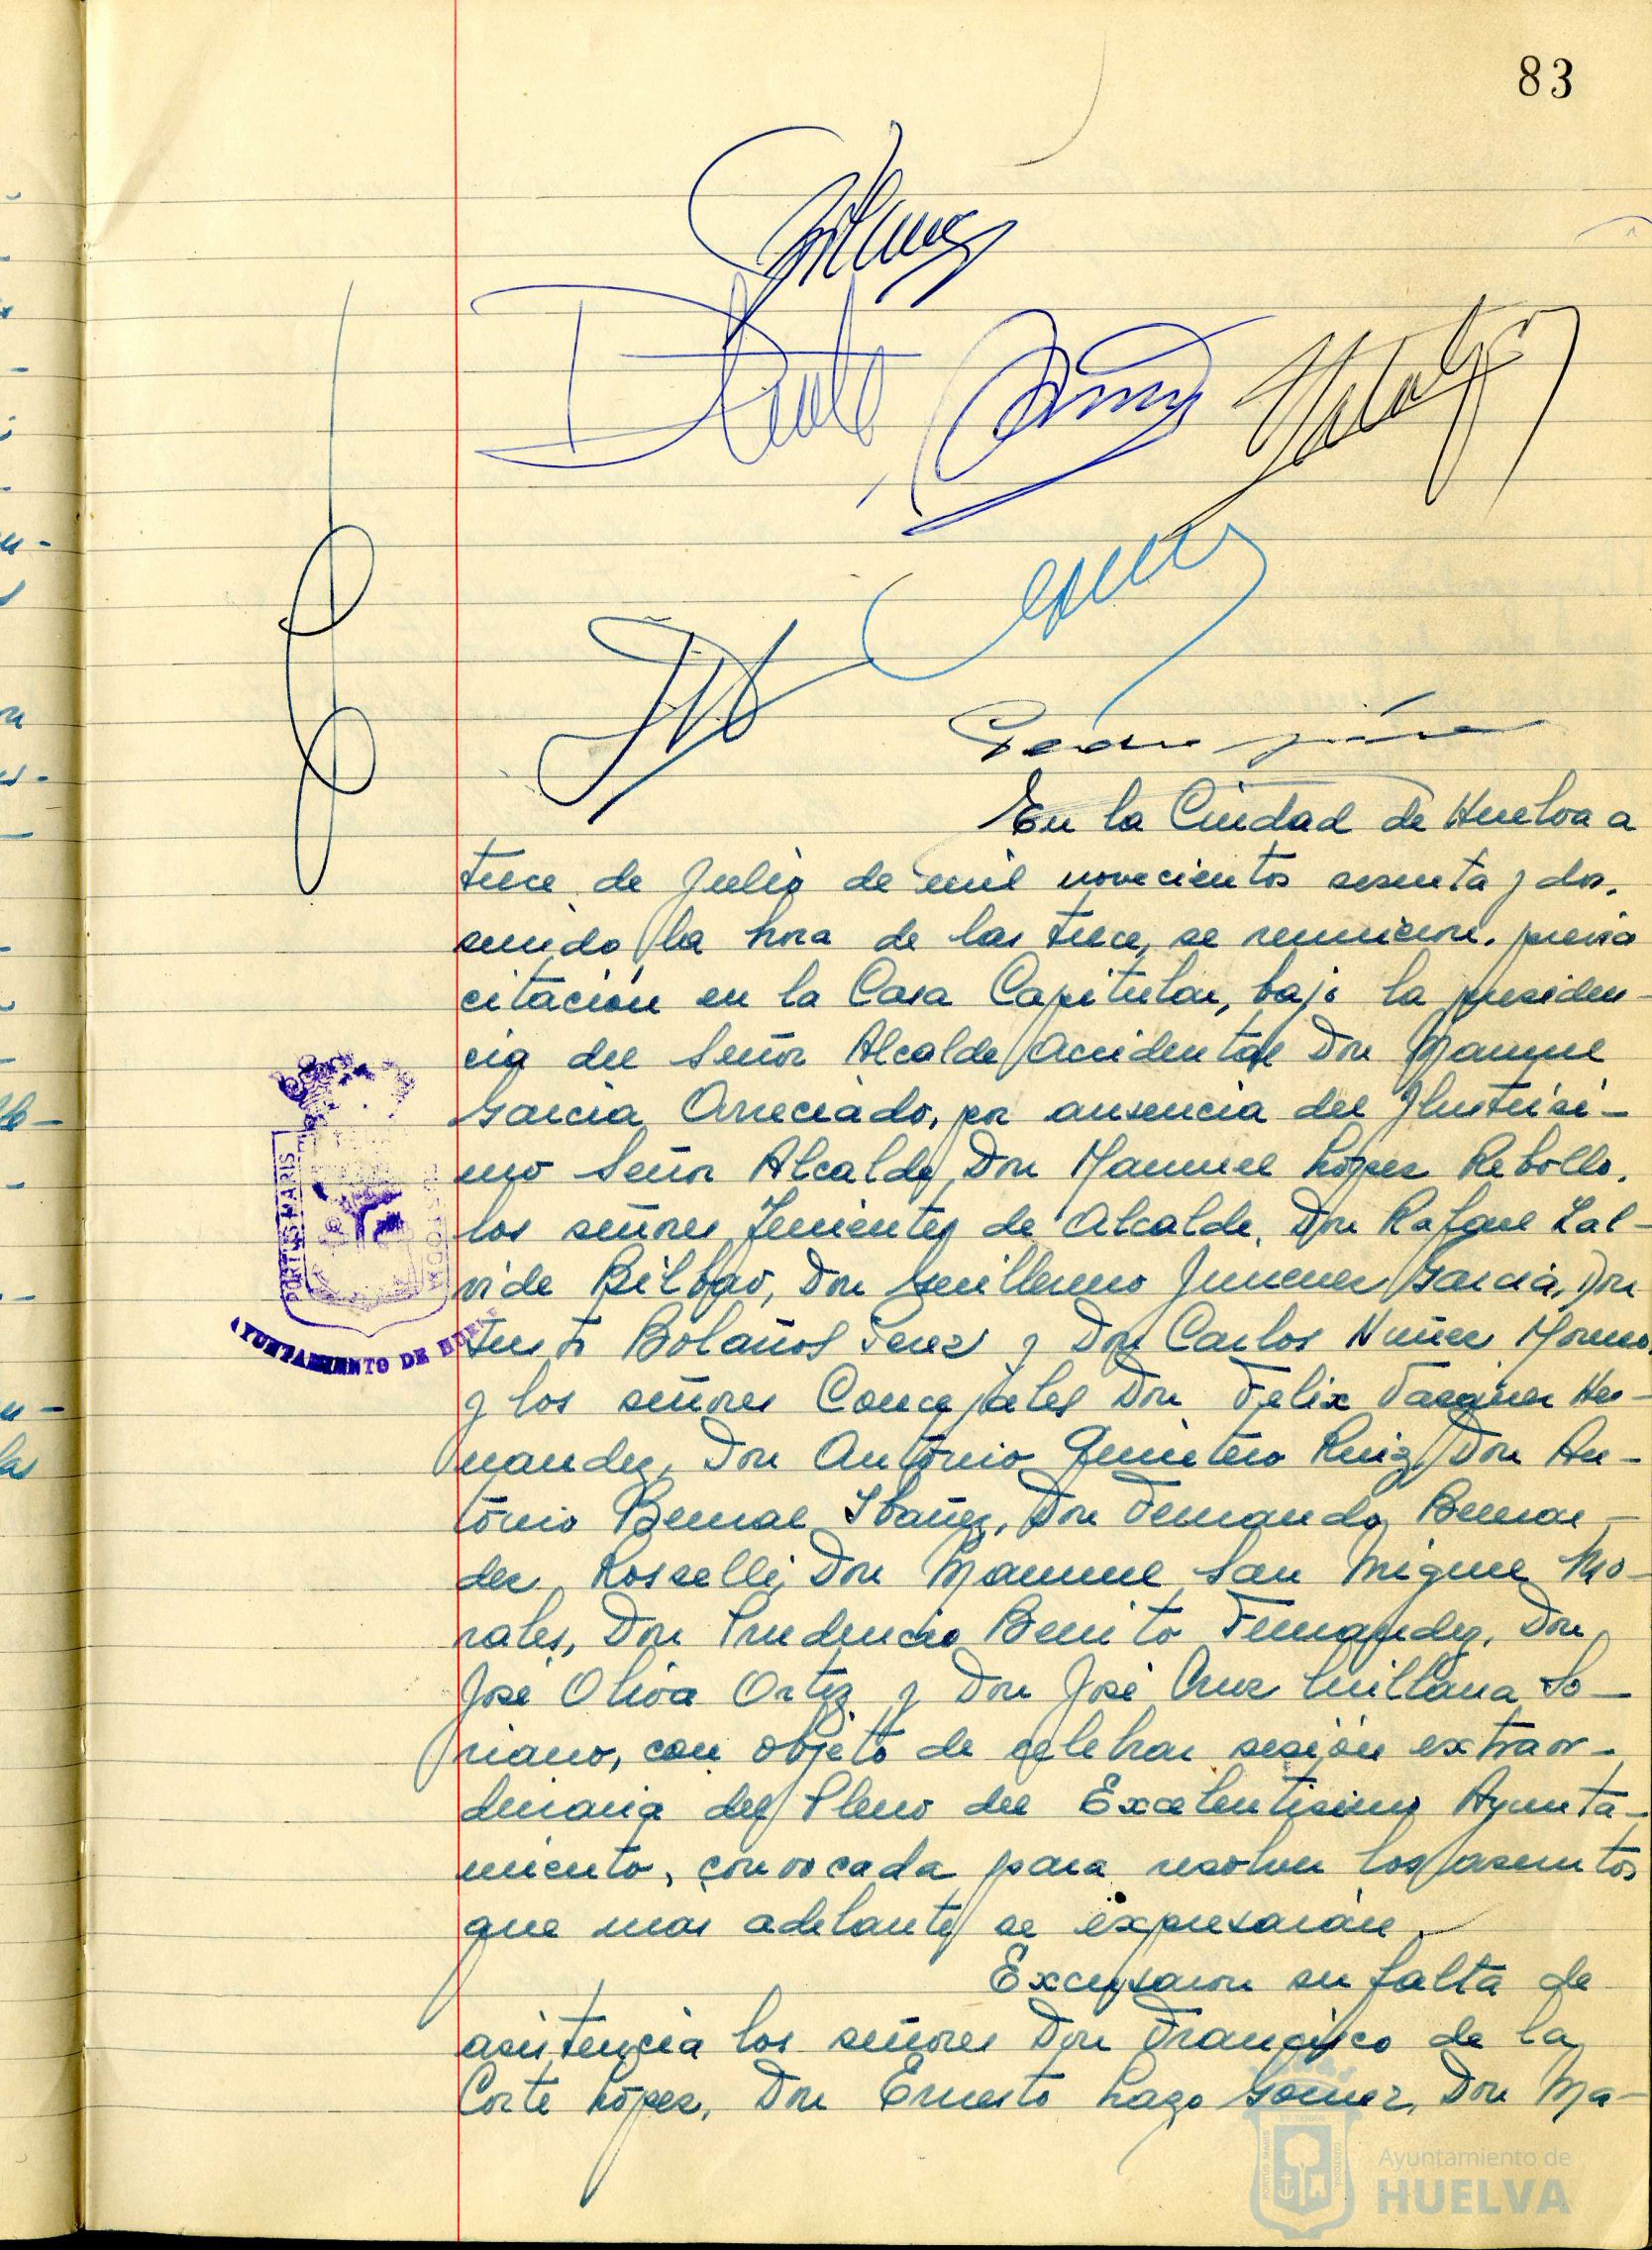 83
En la Ciudad de Huelva a
trece de Julio de mil novecientos sesenta y dos,
siendo la hora de las trece, se reunieron, previa
citación en la Casa Capitular, bajo la presiden-
cia del Señor Alcalde Accidental Don Manuel
Garcia Arreciado, por ausencia del Ilustrisi-
mo Señor Alcalde, Don Manuel López Rebollo,
los señores Tenientes de Alcalde, Don Rafael Zal-
vide Bilbao, Don Guillermo Jimenez Garcia, Don
Justo Bolaños Perez y Don Carlos Nuñez Moreno,
y los señores Concejales Don Felix Vazquez Her-
nandez, Don Antonio Quintero Ruiz, Don An-
tonio Bernal Ibañez, Don Fernando Bernar-
dez Rosselli, Don Manuel San Miguel Mo-
rales, Don Prudencio Benito Fernandez, Don
José Oliva Ortiz y Don José Cruz Quillana So-
riano, con objeto de celebrar sesión extraor-
dinaria del Pleno del Excelentisimo Ayunta-
miento, convocada para resolver los asuntos
que mas adelante se expresarán.
Excusaron su falta de
asistencia los señores Don Francisco de la
Corte López, Don Ernesto Lazo Gomez, Don Ma-
PORTUS MARIS
AYUNTAMIENTO DE HUEL
Ayuntamiento de
HUELVA